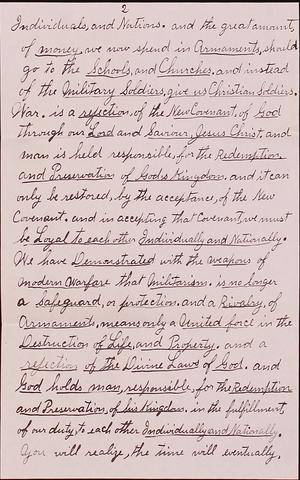 2
Individuals, and Nations. and the great amount,
of money, we now spend in Armaments, should
go to the Schools, and Churches. and instead
of the Military Soldiers, give us Christian Soldiers.
War. is a rejection, of the New Covenant, of God
through our Lord and Saviour, Jesus Christ, and
man is held responsible, for the Redemption,
and Preservation of Gods Kingdom, and it can
only be restored, by the acceptance, of the New
Covenant. and in accepting that Covenant, we must
be Loyal to each other Individually and Nationally.
We have Demonstrated with the weapons of
modern Warfare that Militarism. is no longer
a safeguard, or protection. and a Rivalry, of
Armaments, means only a United force in the
Destruction of Life, and Property. and a
rejection of the Divine Laws of God. and
God holds man, responsible, for the Redemption
and Preservation, of his Kingdom, in the fulfillment,
of our duty, to each other Individually and Nationally.
You will realize, the time will eventually,